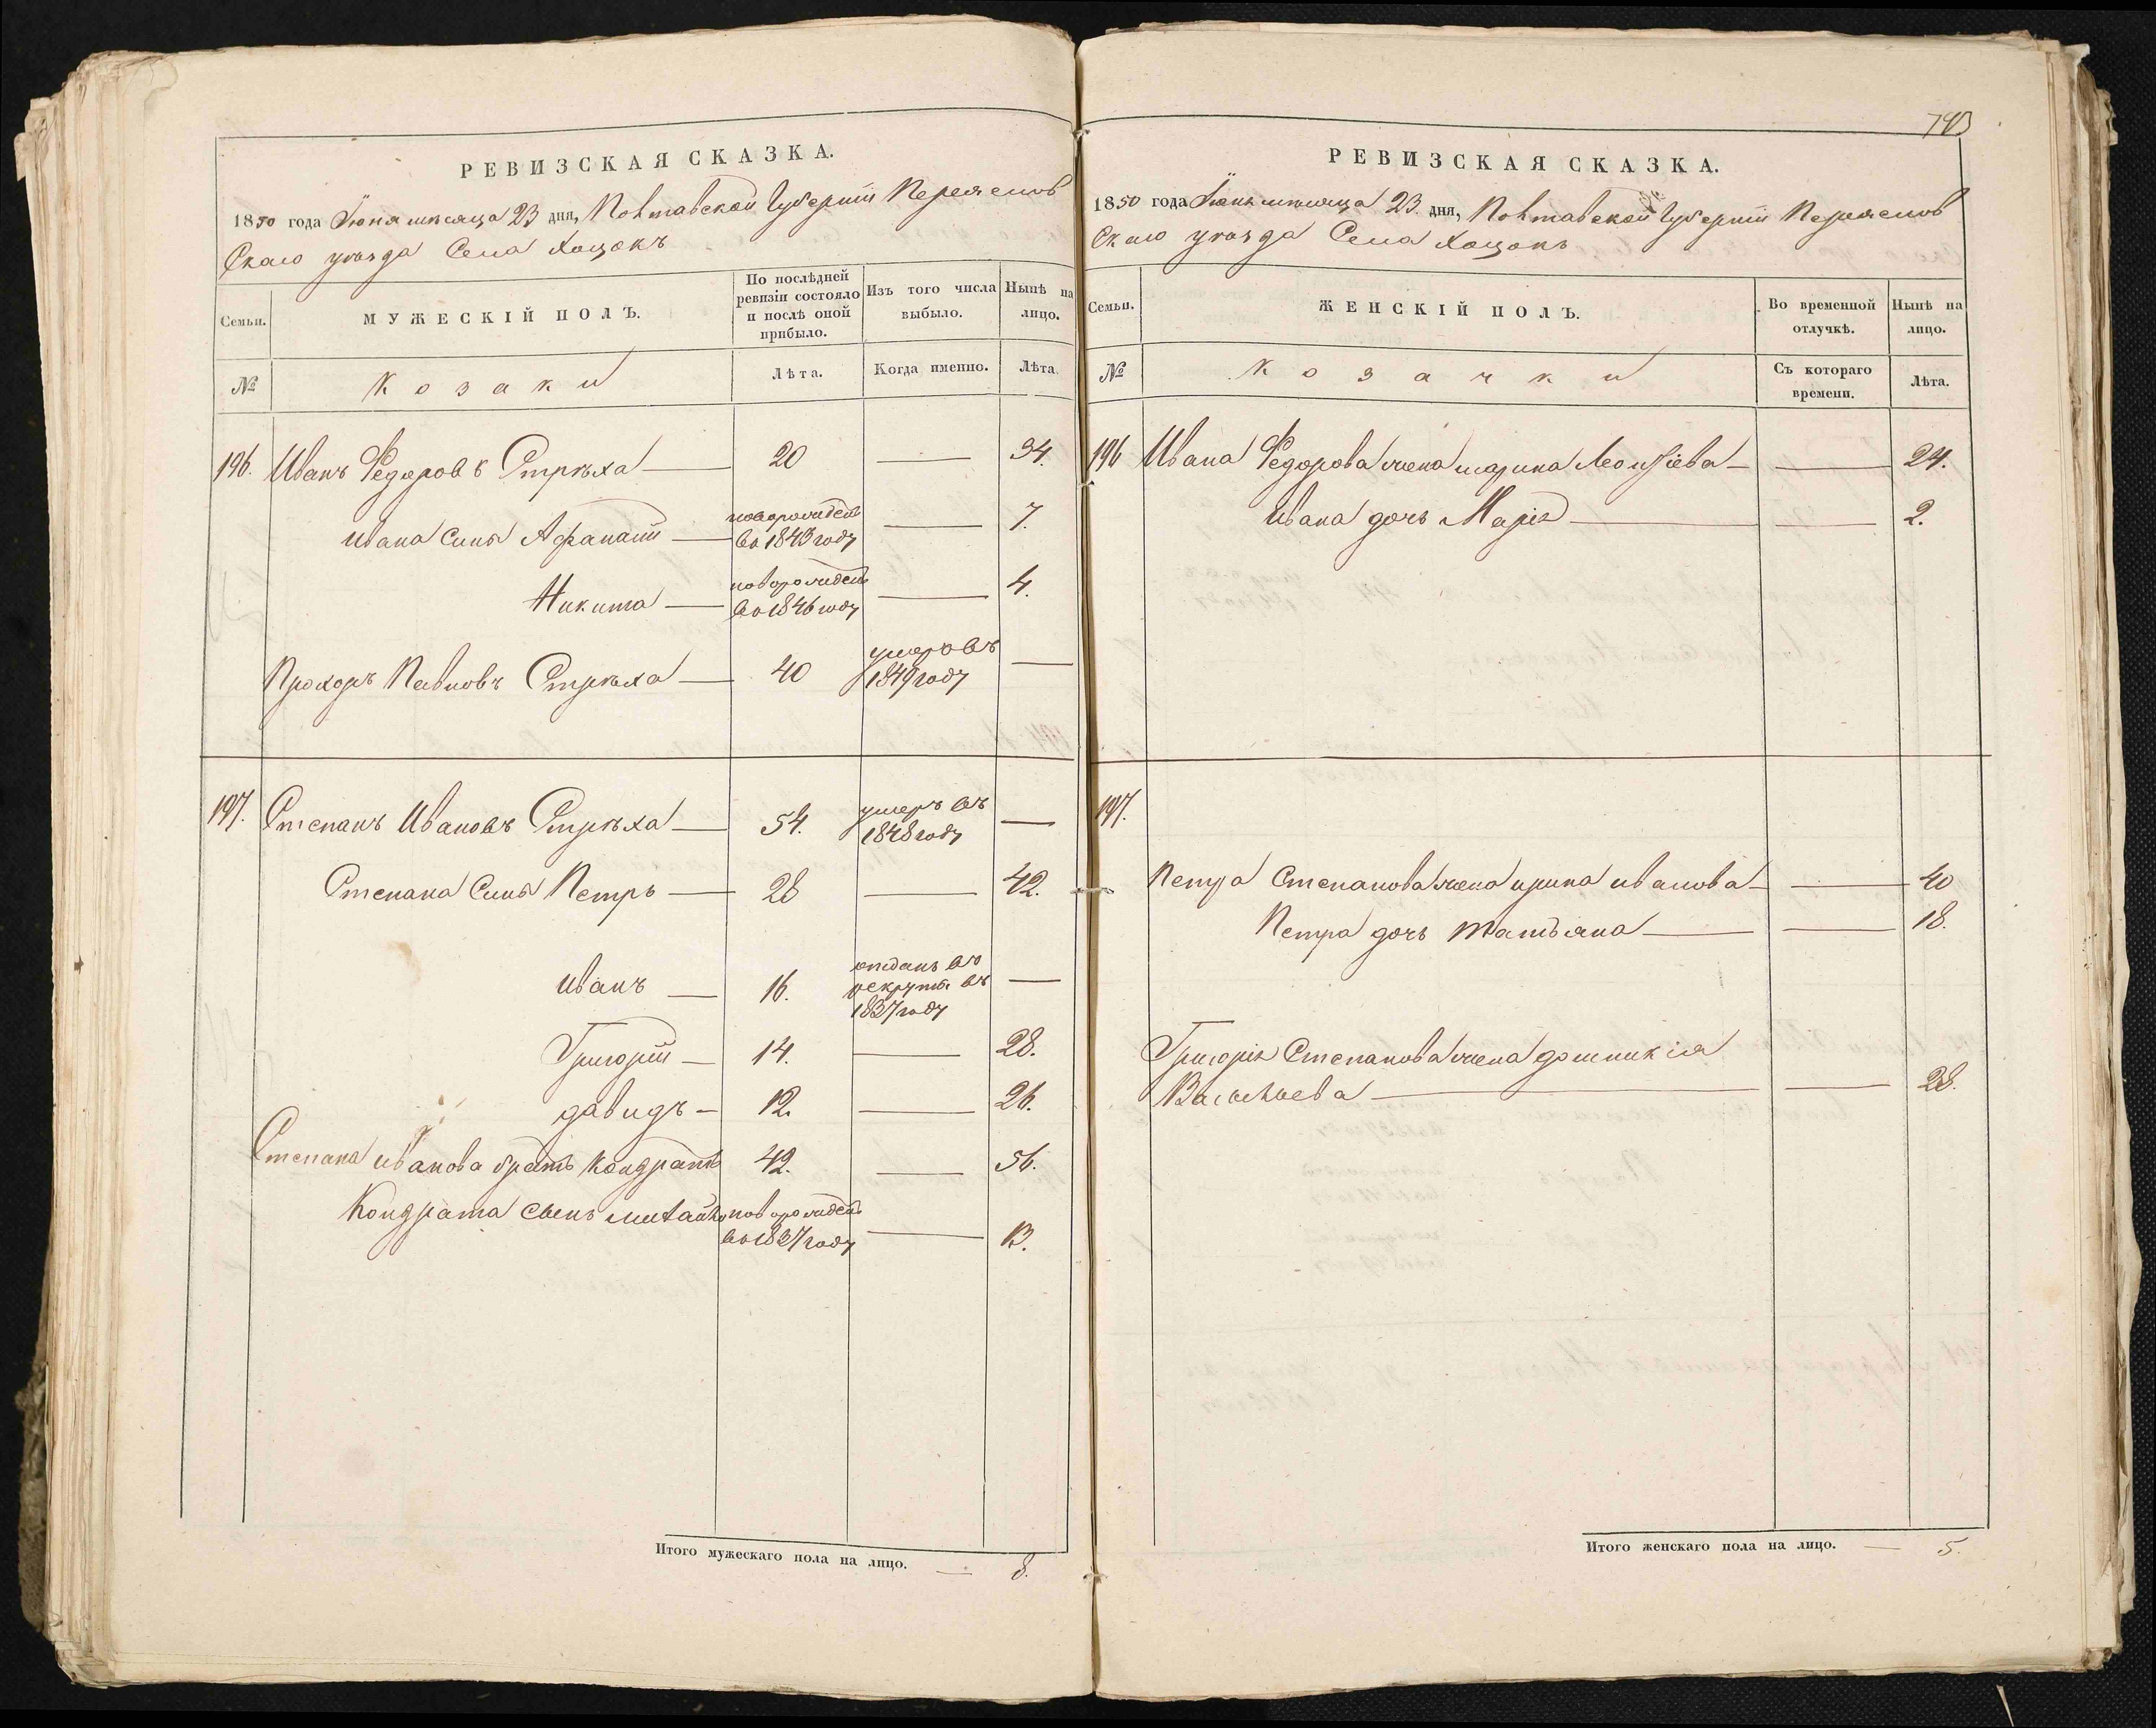 РЕВИЗСКАЯ СКАЗКА.
1850 года Іюня мѣсяца 23 дня, Полтавской Губерніи Переяслов
Скаго уѣзда Села Хоцокъ
Семьи.
МУЖЕСКІЙ ПОЛЪ.
По послѣдней ревизіи состояло и послѣ оной прибыло.
Изъ того числа выбыло.
Нынѣ на лицо.
№
Козаки
Лѣта.
Когда именно.
Лѣта.
196. Иванъ Федоровъ Стрѣха — 20 — 34.
Ивана Сынъ Афанасій — новорожденъ во 1843 году — 7.
Никита — новорожденъ во 1846 году — 4.
Прохоръ Павловъ Стрѣха — 40 умеръ въ 1849 году —
197. Степанъ Ивановъ Стрѣха — 54. умеръ въ 1848 году —
Степана Сынъ Петръ — 28 — 42.
Иванъ — 16. отданъ во рекруты въ 1837 году —
Григорій — 14. — 28.
Давидъ — 12. — 26.
Степана Иванова братъ Кондратъ 42. — 56.
Кондрата Сынъ Михайло новорожденъ во 1837 году — 13.
Итого мужескаго пола на лицо. — 8.
743
РЕВИЗСКАЯ СКАЗКА.
1850 года Іюня мѣсяца 23. дня, Полтавской Губерніи Переяслов
Скаго уѣзда Села Хоцокъ
Семьи.
ЖЕНСКІЙ ПОЛЪ.
Во временной отлучкѣ.
Нынѣ на лицо.
№
Козачки
Съ котораго времени.
Лѣта.
196 Ивана Федорова жена Марина — — 24.
Ивана дочь Марія — — 2.
197.
Петра Степанова жена Ирина Иванова — — 40
Петра дочь Татьяна — — 18.
Григорія Степанова жена Домникія
Васильева — — 28.
Итого женскаго пола на лицо. — 5.